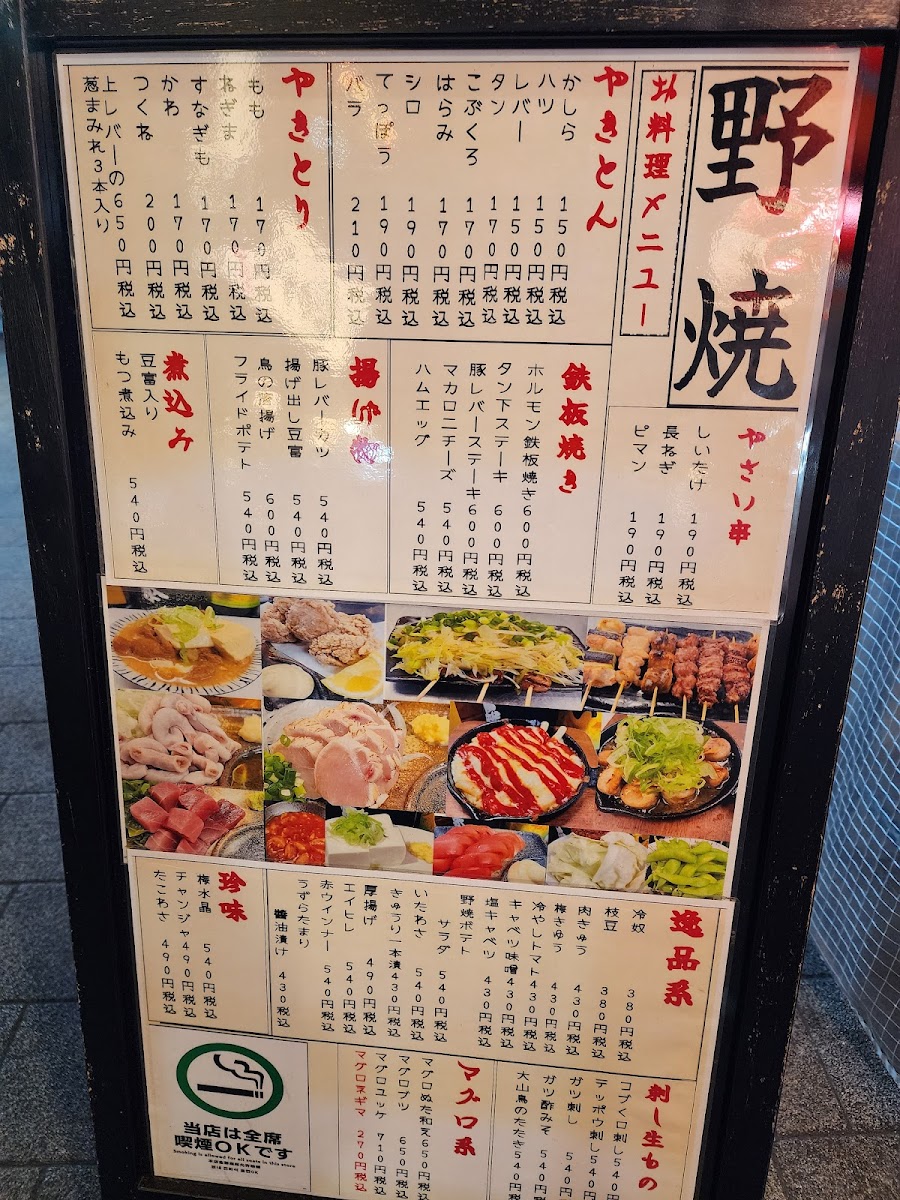 野焼
お料理メニュー
やきとん
かしら 150円税込
ハツ 150円税込
レバー 150円税込
タン 170円税込
こぶくろ 170円税込
はらみ 170円税込
シロ 190円税込
てっぽう 190円税込
バラ 210円税込
やきとり
もも 170円税込
ねぎま 170円税込
すなぎも 170円税込
かわ 170円税込
つくね 200円税込
上レバーの 650円税込
葱まみれ3本入り
やさい串
しいたけ 190円税込
長ねぎ 190円税込
ピマン 190円税込
鉄板焼き
ホルモン鉄板焼き 600円税込
タン下ステーキ 600円税込
豚レバーステーキ 600円税込
マカロニチーズ 540円税込
ハムエッグ 540円税込
揚げ物
豚レバーカツ 540円税込
揚げ出し豆富 540円税込
鳥の唐揚げ 600円税込
フライドポテト 540円税込
煮込み
豆富入り
もつ煮込み 540円税込
逸品系
冷奴 380円税込
枝豆 380円税込
肉きゅう 430円税込
梅きゅう 430円税込
冷やしトマト 430円税込
キャベツ味噌 430円税込
塩キャベツ 430円税込
野焼ポテト
サラダ 540円税込
いたわさ 540円税込
きゅうり一本漬 430円税込
厚揚げ 490円税込
エイヒレ 540円税込
赤ウインナー 540円税込
うずらたまり
醬油漬け 430円税込
珍味
梅水晶 540円税込
チャンジャ 490円税込
たこわさ 490円税込
刺し生もの
コブくロ刺し 540円
テッポウ刺し 540円
ガツ刺し 540円
ガツ酢みそ 540円
大山鳥のたたき 540円
マグロ系
マグロぬた和え 650円税込
マグロブツ 650円税込
マグロユッケ 710円税込
マグロネギマ 270円税込
当店は全席
喫煙OKです
Smoking is allowed for all seats in this store